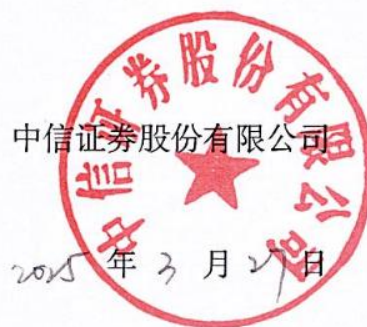 中信证券股份有限公司
中信证券股份有限公司
2025 年 3 月 27 日